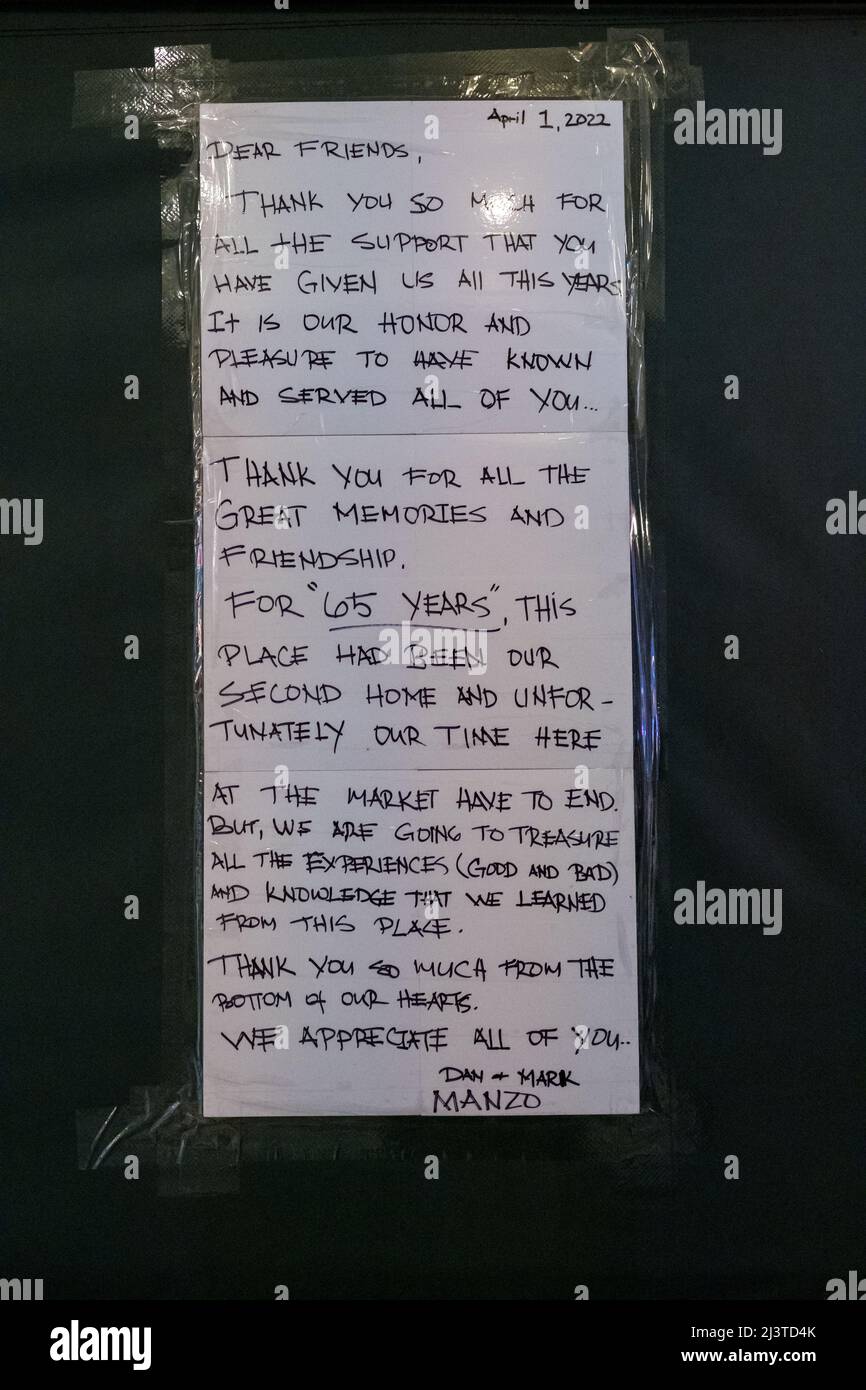 April 1, 2022
DEAR FRIENDS,
THANK YOU SO MUCH FOR
ALL tHE SUPPORT THAT YOU
HAVE GIVEN US All THIS YEARS
It IS OUR HONOR AND
PLEASURE TO HAVE KNOWN
AND SERVED ALL OF YOU...
THANK YOU FOR ALL THE
GREAT MEMORIES AND
FRIENDSHIP.
FOR "65 YEARS", THIS
PLACE HAD BEEN OUR
SECOND HOME AND UNFOR-
TUNATELY OUR TIME HERE
AT THE MARKET HAVE TO END.
BUT, WE ARE GOING TO TREASURE
ALL THE EXPERIENCES (GOOD AND BAD)
AND KNOWLEDGE THAT WE LEARNED
FROM THIS PLACE.
THANK YOU SO MUCH FROM THE
BOTTOM of OUR HEARTS.
WE APPRECIATE ALL OF YOU..
DAN + MARK
MANZO
a
alamy
a
alamy
a
alamy
a
alamy
alamy
Image ID: 2J3TD4K
www.alamy.com